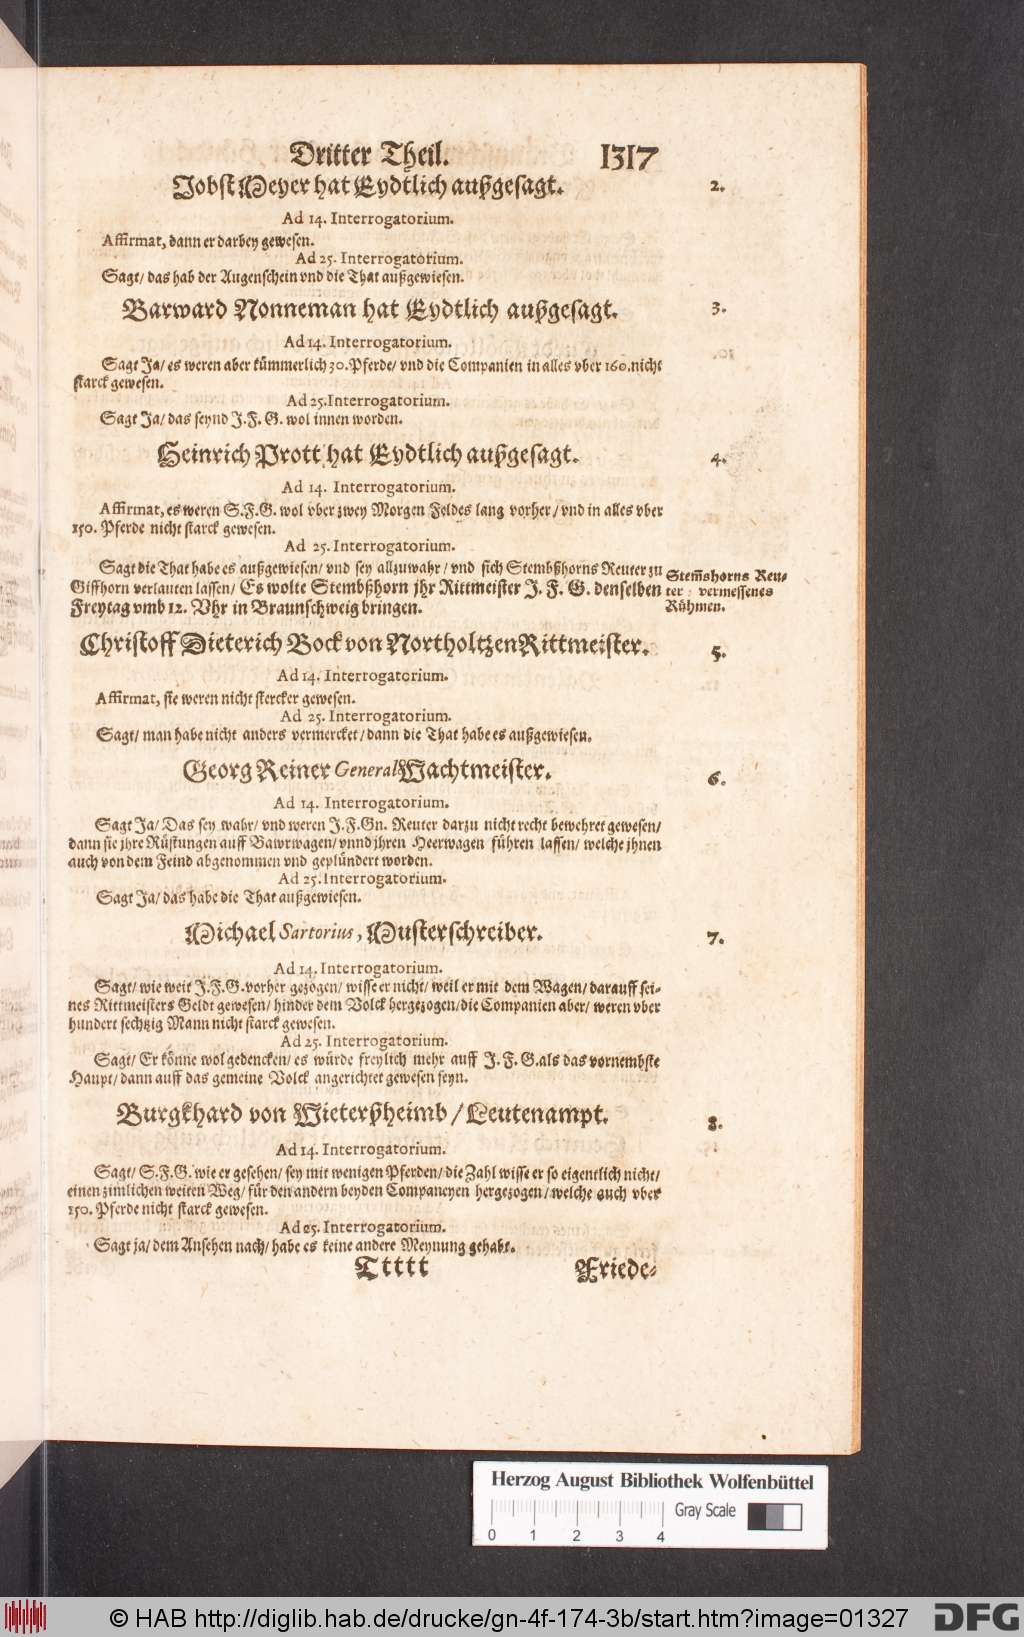 Dritter Theil. 1317
Jobst Meyer hat Eydtlich außgesagt. 2.
Ad 14. Interrogatorium.
Affirmat, dann er darbey gewesen.
Ad 25. Interrogatorium.
Sagt/ das hab der Augenschein vnd die That außgewiesen.
Barward Nonneman hat Eydtlich außgesagt. 3.
Ad 14. Interrogatorium.
Sagt Ja/ es weren aber kümmerlich 30. Pferde/ vnd die Companien in alles vber 160. nicht
starck gewesen.
Ad 25. Interrogatorium.
Sagt Ja/ das seynd J. F. G. wol innen worden.
Heinrich Prott hat Eydtlich außgesagt. 4.
Ad 14. Interrogatorium.
Affirmat, es weren S. F. G. wol vber zwey Morgen Feldes lang vorher/ vnd in alles vber
150. Pferde nicht starck gewesen.
Ad 25. Interrogatorium.
Sagt die That habe es außgewiesen/ vnd sey allzuwahr/ vnd sich Stembßhorns Reuter zu
Giffhorn verlauten lassen/ Es wolte Stembßhorn jhr Rittmeister J. F. G. denselben
Freytag vmb 12. Vhr in Braunschweig bringen.
Stem̃shorns Reu-
ter vermessenes
Rühmen.
Christoff Dieterich Bock von Northoltzen Rittmeister. 5.
Ad 14. Interrogatorium.
Affirmat, sie weren nicht stercker gewesen.
Ad 25. Interrogatorium.
Sagt/ man habe nicht anders vermercket/ dann die That habe es außgewiesen.
Georg Reiner General Wachtmeister. 6.
Ad 14. Interrogatorium.
Sagt Ja/ Das sey wahr/ vnd weren J. F. Gn. Reuter darzu nicht recht bewehret gewesen/
dann sie jhre Rüstungen auff Bawrwagen/ vnnd jhren Heerwagen führen lassen/ welche jhnen
auch von dem Feind abgenommen vnd geplündert worden.
Ad 25. Interrogatorium.
Sagt Ja/ das habe die That außgewiesen.
Michael Sartorius, Musterschreiber. 7.
Ad 14. Interrogatorium.
Sagt/ wie weit J. F. G. vorher gezogen/ wisse er nicht/ weil er mit dem Wagen/ darauff sei-
nes Rittmeisters Geldt gewesen/ hinder dem Volck hergezogen/ die Companien aber/ weren vber
hundert sechtzig Mann nicht starck gewesen.
Ad 25. Interrogatorium.
Sagt/ Er könne wol gedencken/ es würde freylich mehr auff J. F. G. als das vornembste
Haupt/ dann auff das gemeine Volck angerichtet gewesen seyn.
Burgkhard von Wieterßheimb/ Leutenampt. 8.
Ad 14. Interrogatorium.
Sagt/ S. F. G. wie er gesehen/ sey mit wenigen Pferden/ die Zahl wisse er so eigentlich nicht/
einen zimlichen weiten Weg/ für den andern beyden Companeyen hergezogen/ welche auch vber
150. Pferde nicht starck gewesen.
Ad 25. Interrogatorium.
Sagt ja/ dem Ansehen nach/ habe es keine andere Meynung gehabt.
Ttttt Friede-
Herzog August Bibliothek Wolfenbüttel
Gray Scale
0 1 2 3 4
© HAB http://diglib.hab.de/drucke/gn-4f-174-3b/start.htm?image=01327 DFG